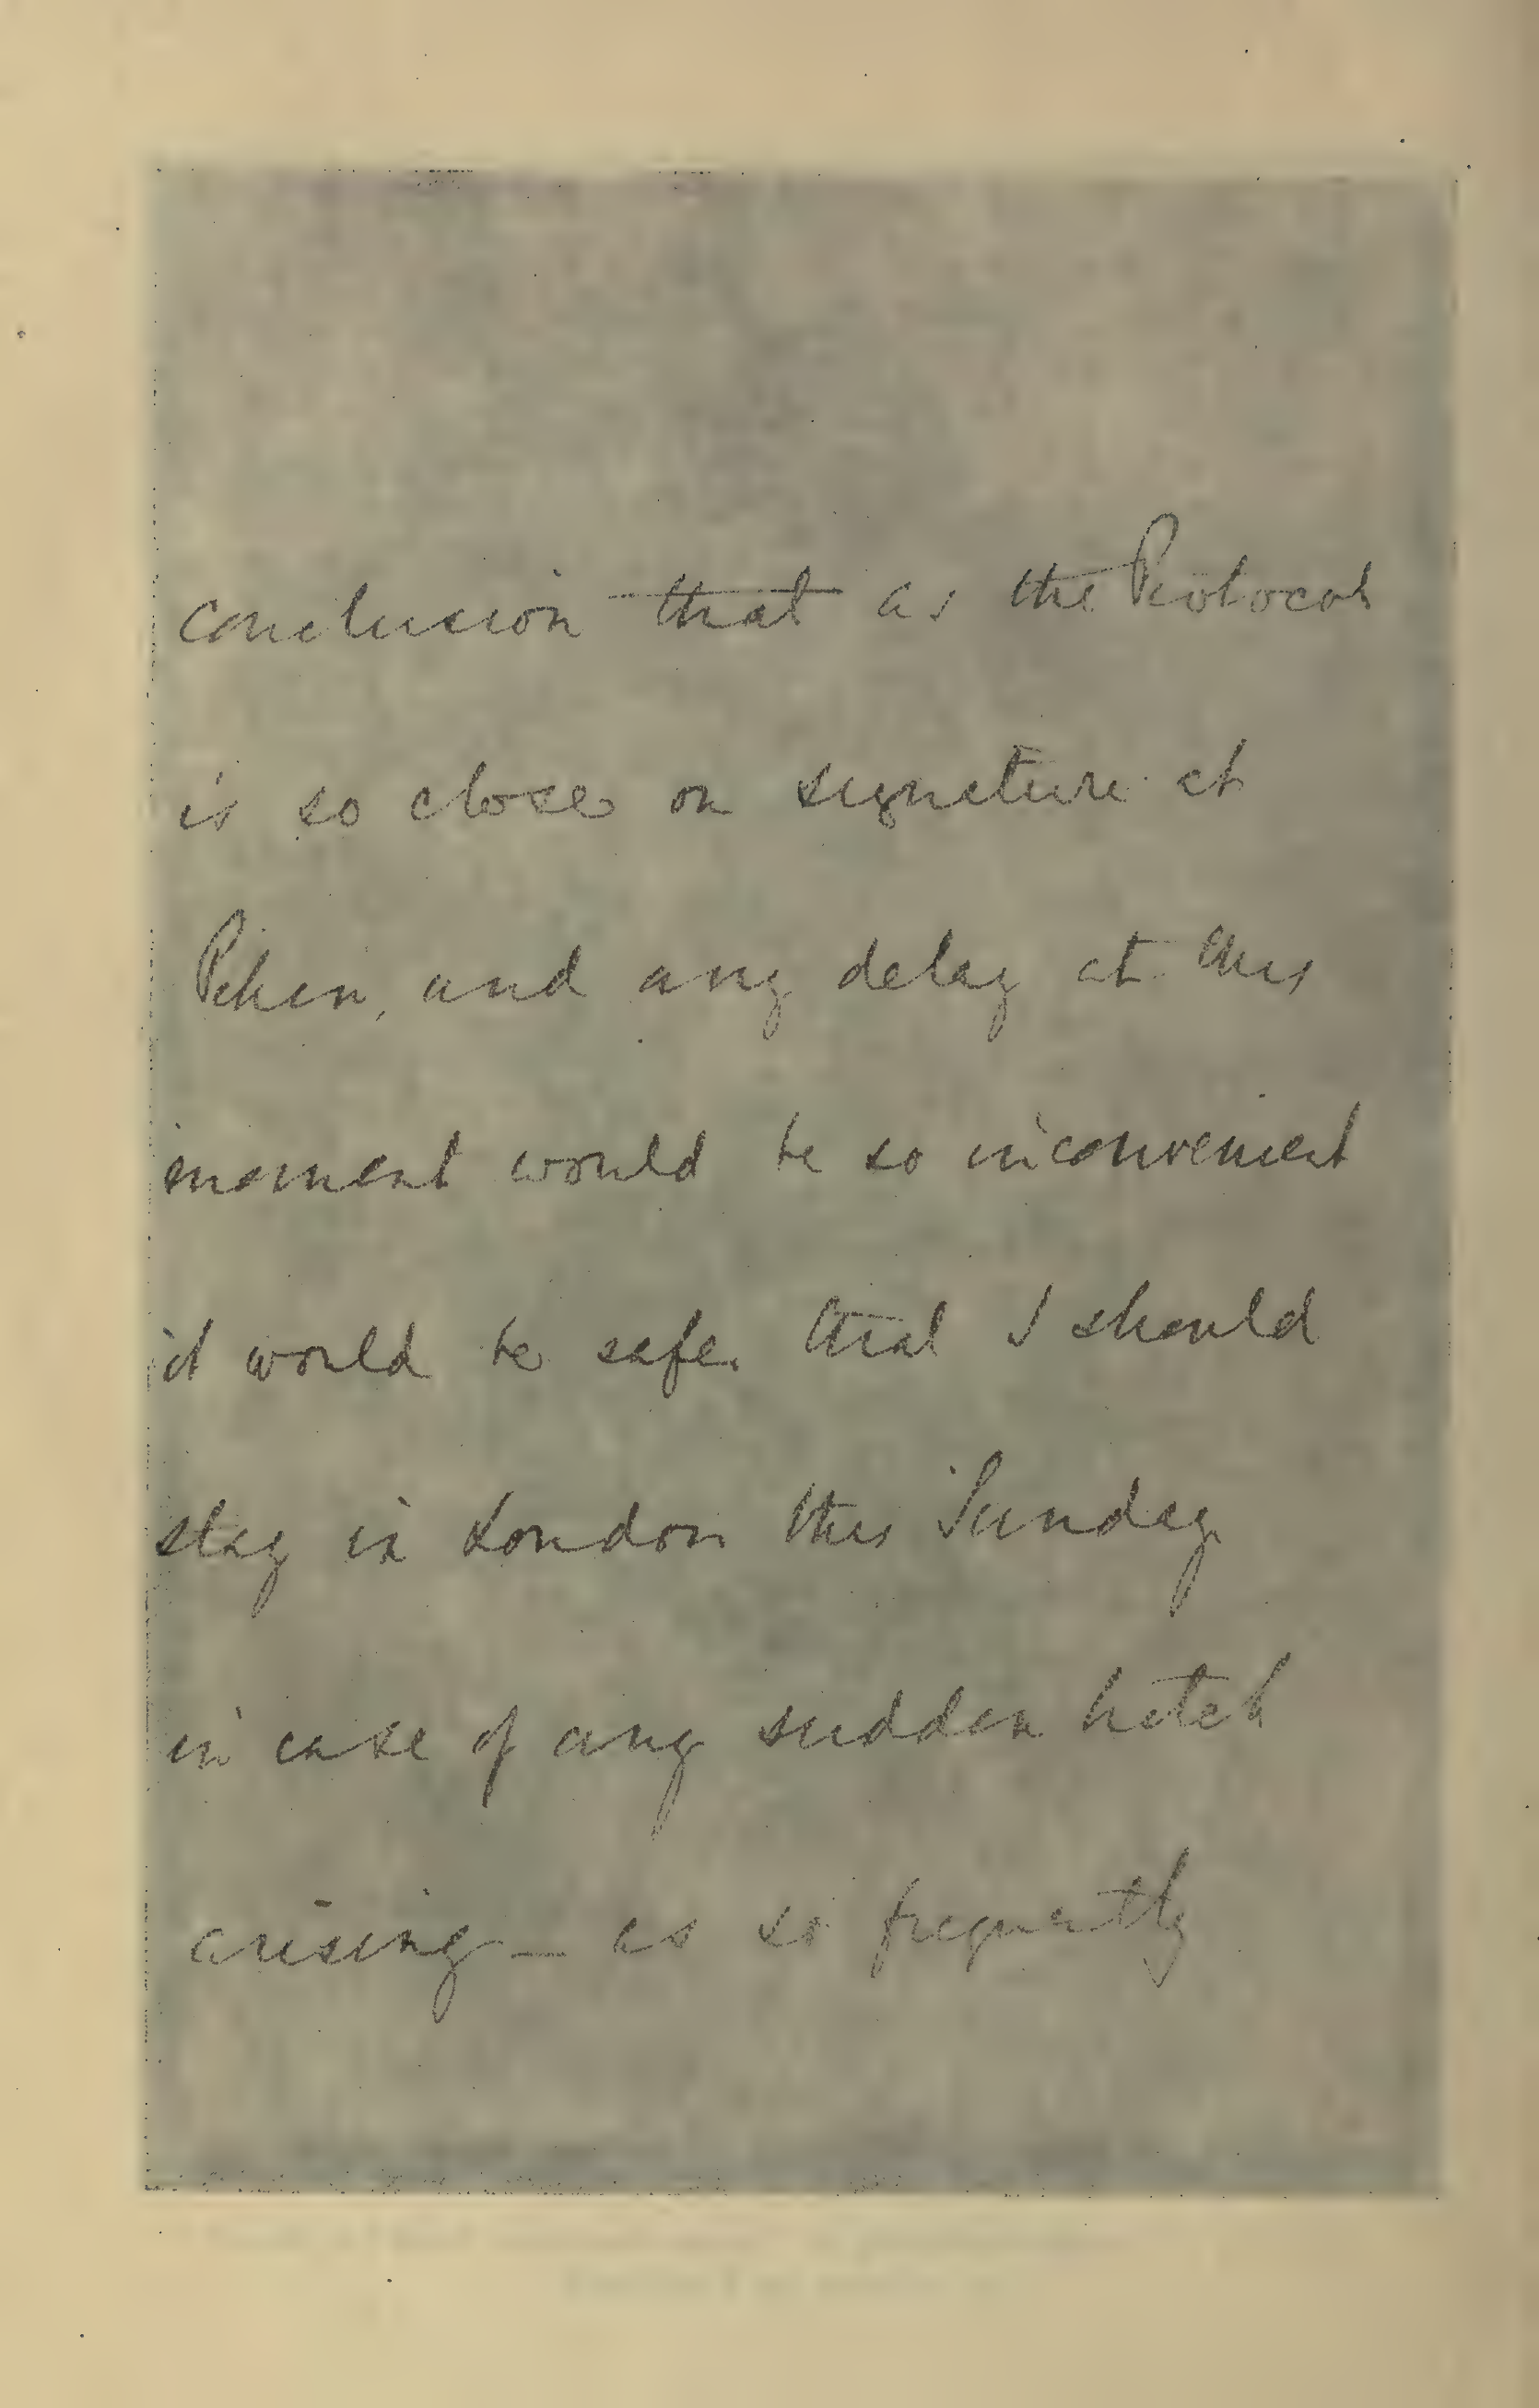 conclusion that as the Protocol
is so close on signature at
Pekin, and any delay at this
moment would be so inconvenient
it would be safer that I should
stay in London this Sunday
in case of any sudden hitch
arising — as so frequently